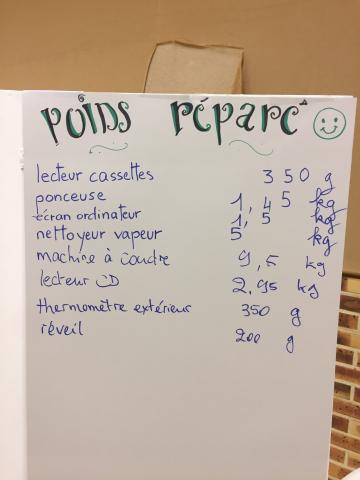 POIDS RÉPARÉ
lecteur cassettes 350 g
ponceuse 1,45 kg
écran ordinateur 1,5 kg
nettoyeur vapeur 5 kg
machine à coudre 9,5 kg
lecteur CD 2,95 kg
thermomètre extérieur 350 g
réveil 200 g